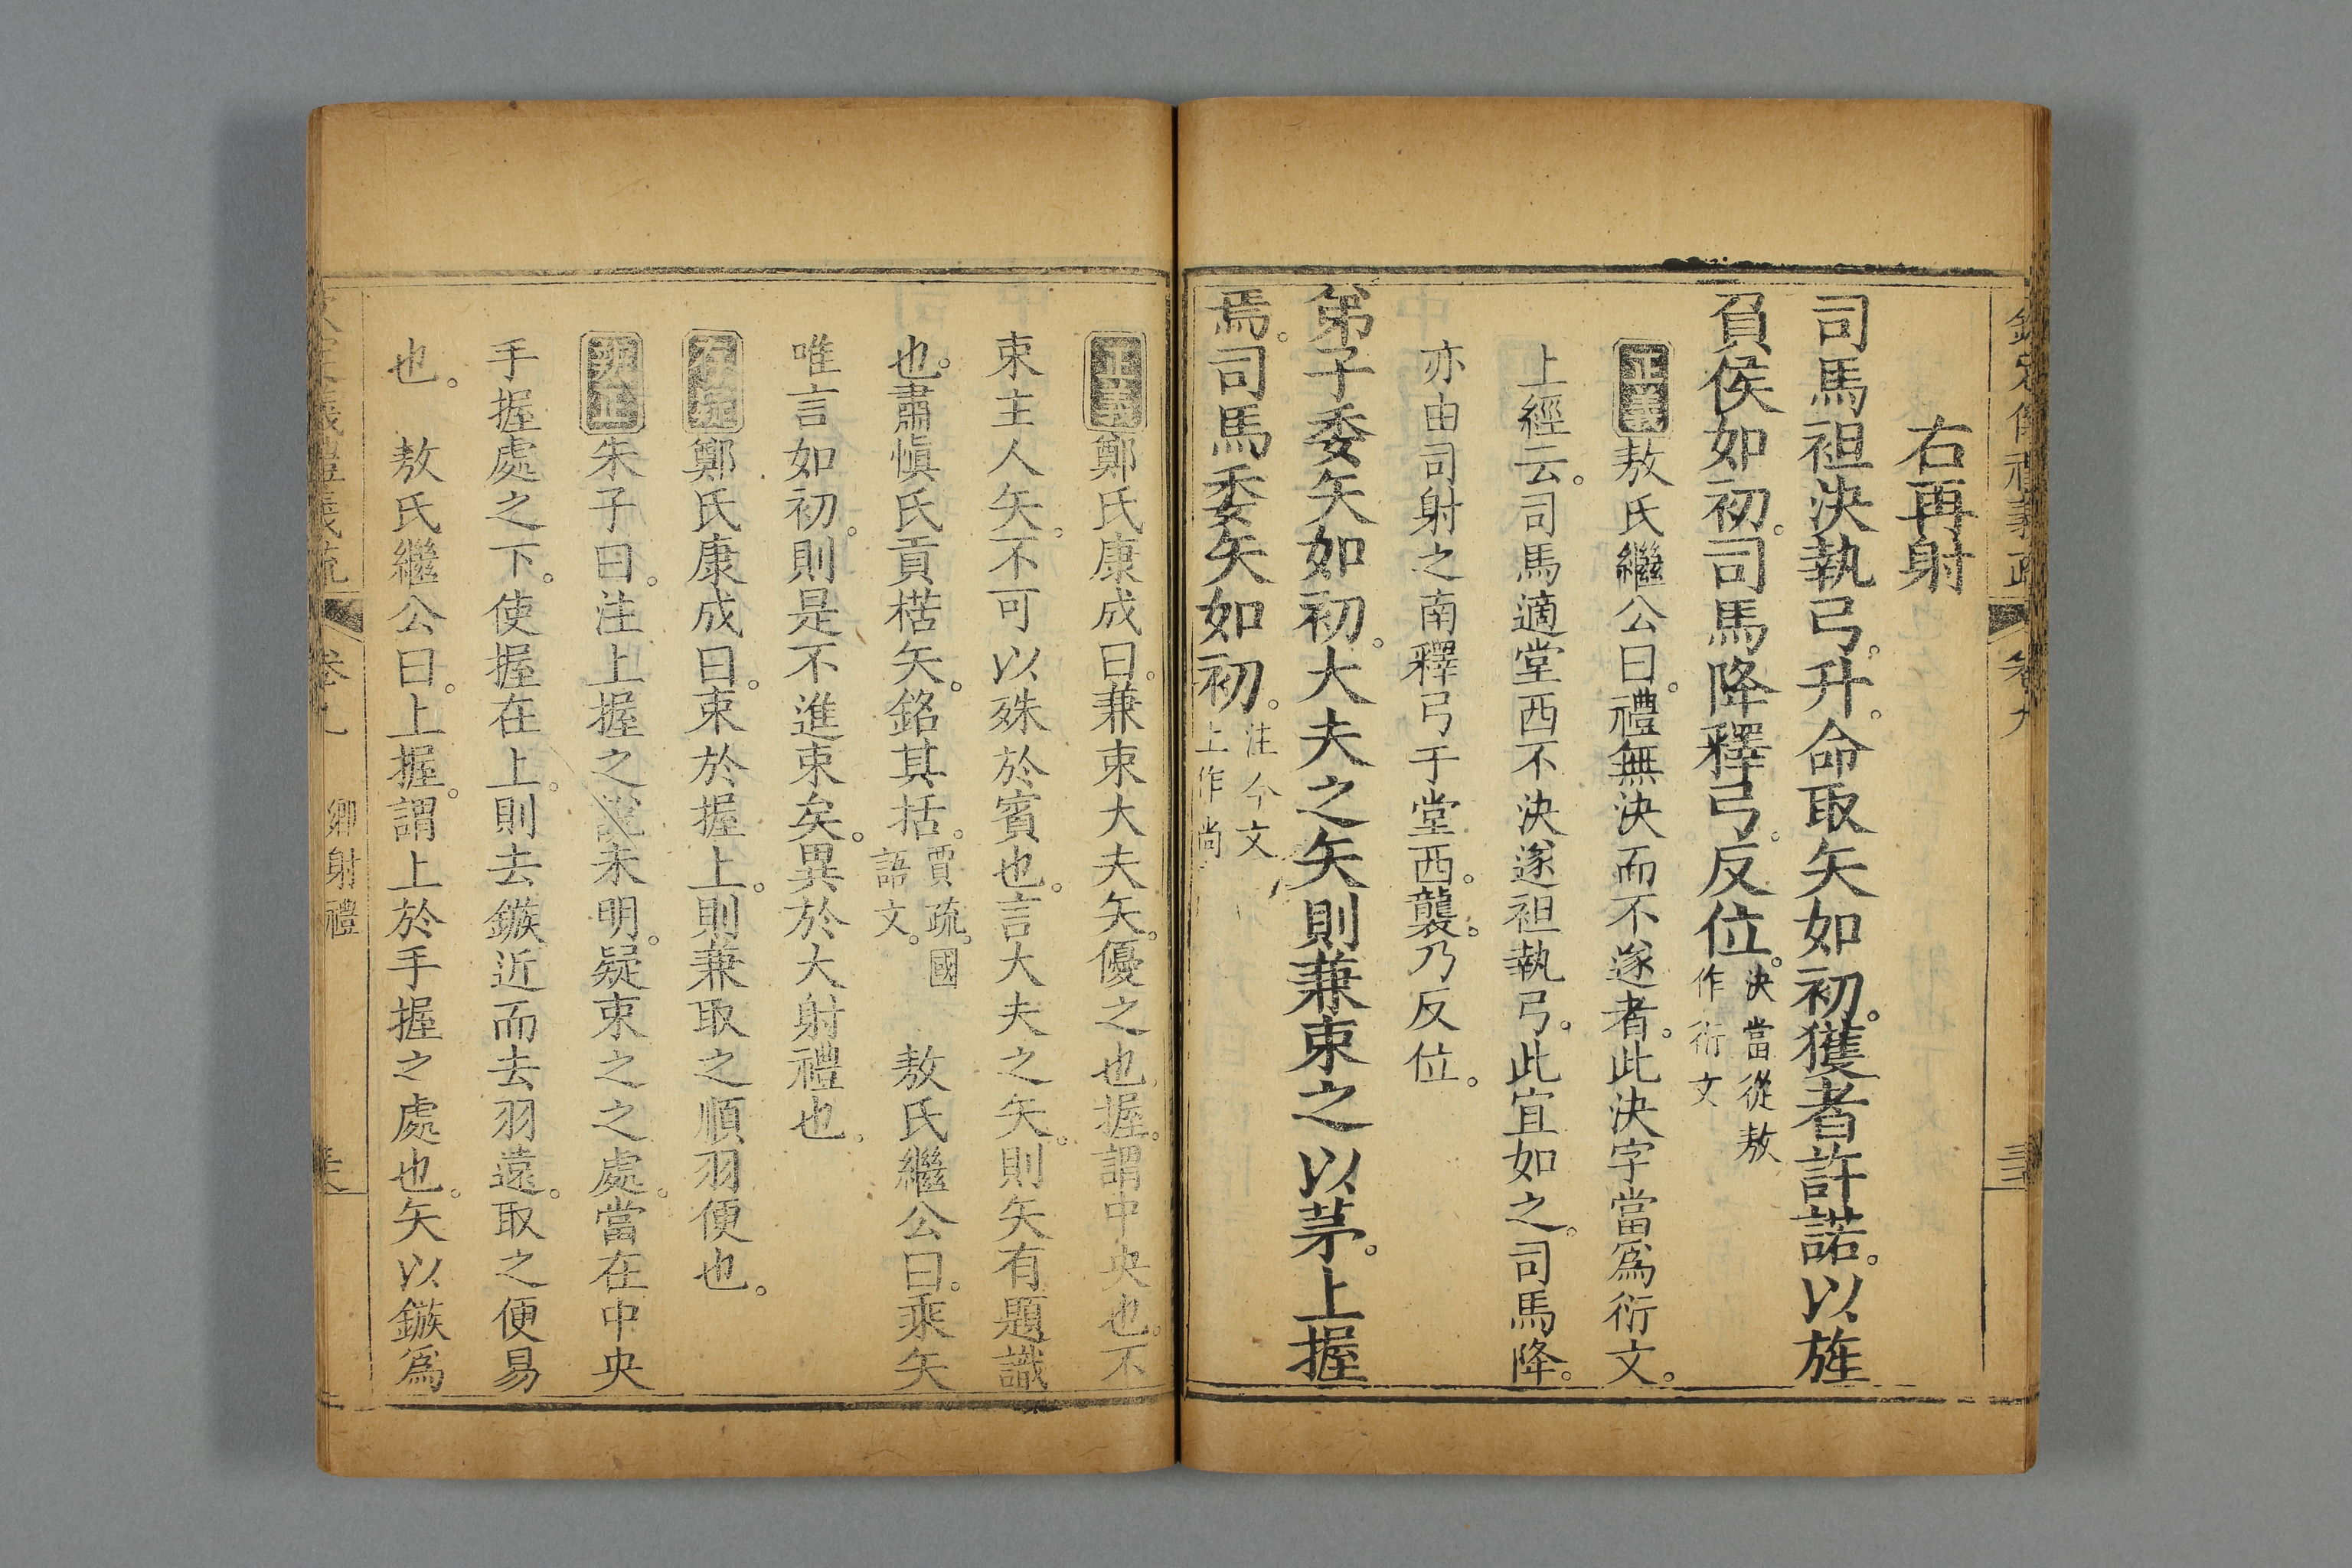 右再射
司馬袒決執弓。升。命取矢如初。獲者許諾。以旌
負侯如初。司馬降釋弓。反位。決當從敖
作衍文
正義敖氏繼公曰。禮無決而不遂者。此決字當爲衍文。
上經云。司馬適堂西不決遂袒執弓。此宜如之。司馬降。
亦由司射之南釋弓于堂西。襲。乃反位。
弟子委矢如初。大夫之矢則兼束之以茅。上握
焉。司馬委矢如初。注今文
上作尚
正義鄭氏康成曰。兼束大夫矢。優之也。握。謂中央也。不
束主人矢。不可以殊於賓也。言大夫之矢。則矢有題識
也。肅愼氏貢楛矢。銘其括。賈疏。國
語文。
敖氏繼公曰。乘矢
唯言如初。則是不進束矣。異於大射禮也。
存疑鄭氏康成曰。束於握上。則兼取之順羽便也。
辨正朱子曰。注上握之說未明。疑束之之處。當在中央
手握處之下。使握在上。則去鏃近而去羽遠。取之便易
也。　敖氏繼公曰。上握。謂上於手握之處也。矢以鏃爲
卷九
鄉射禮